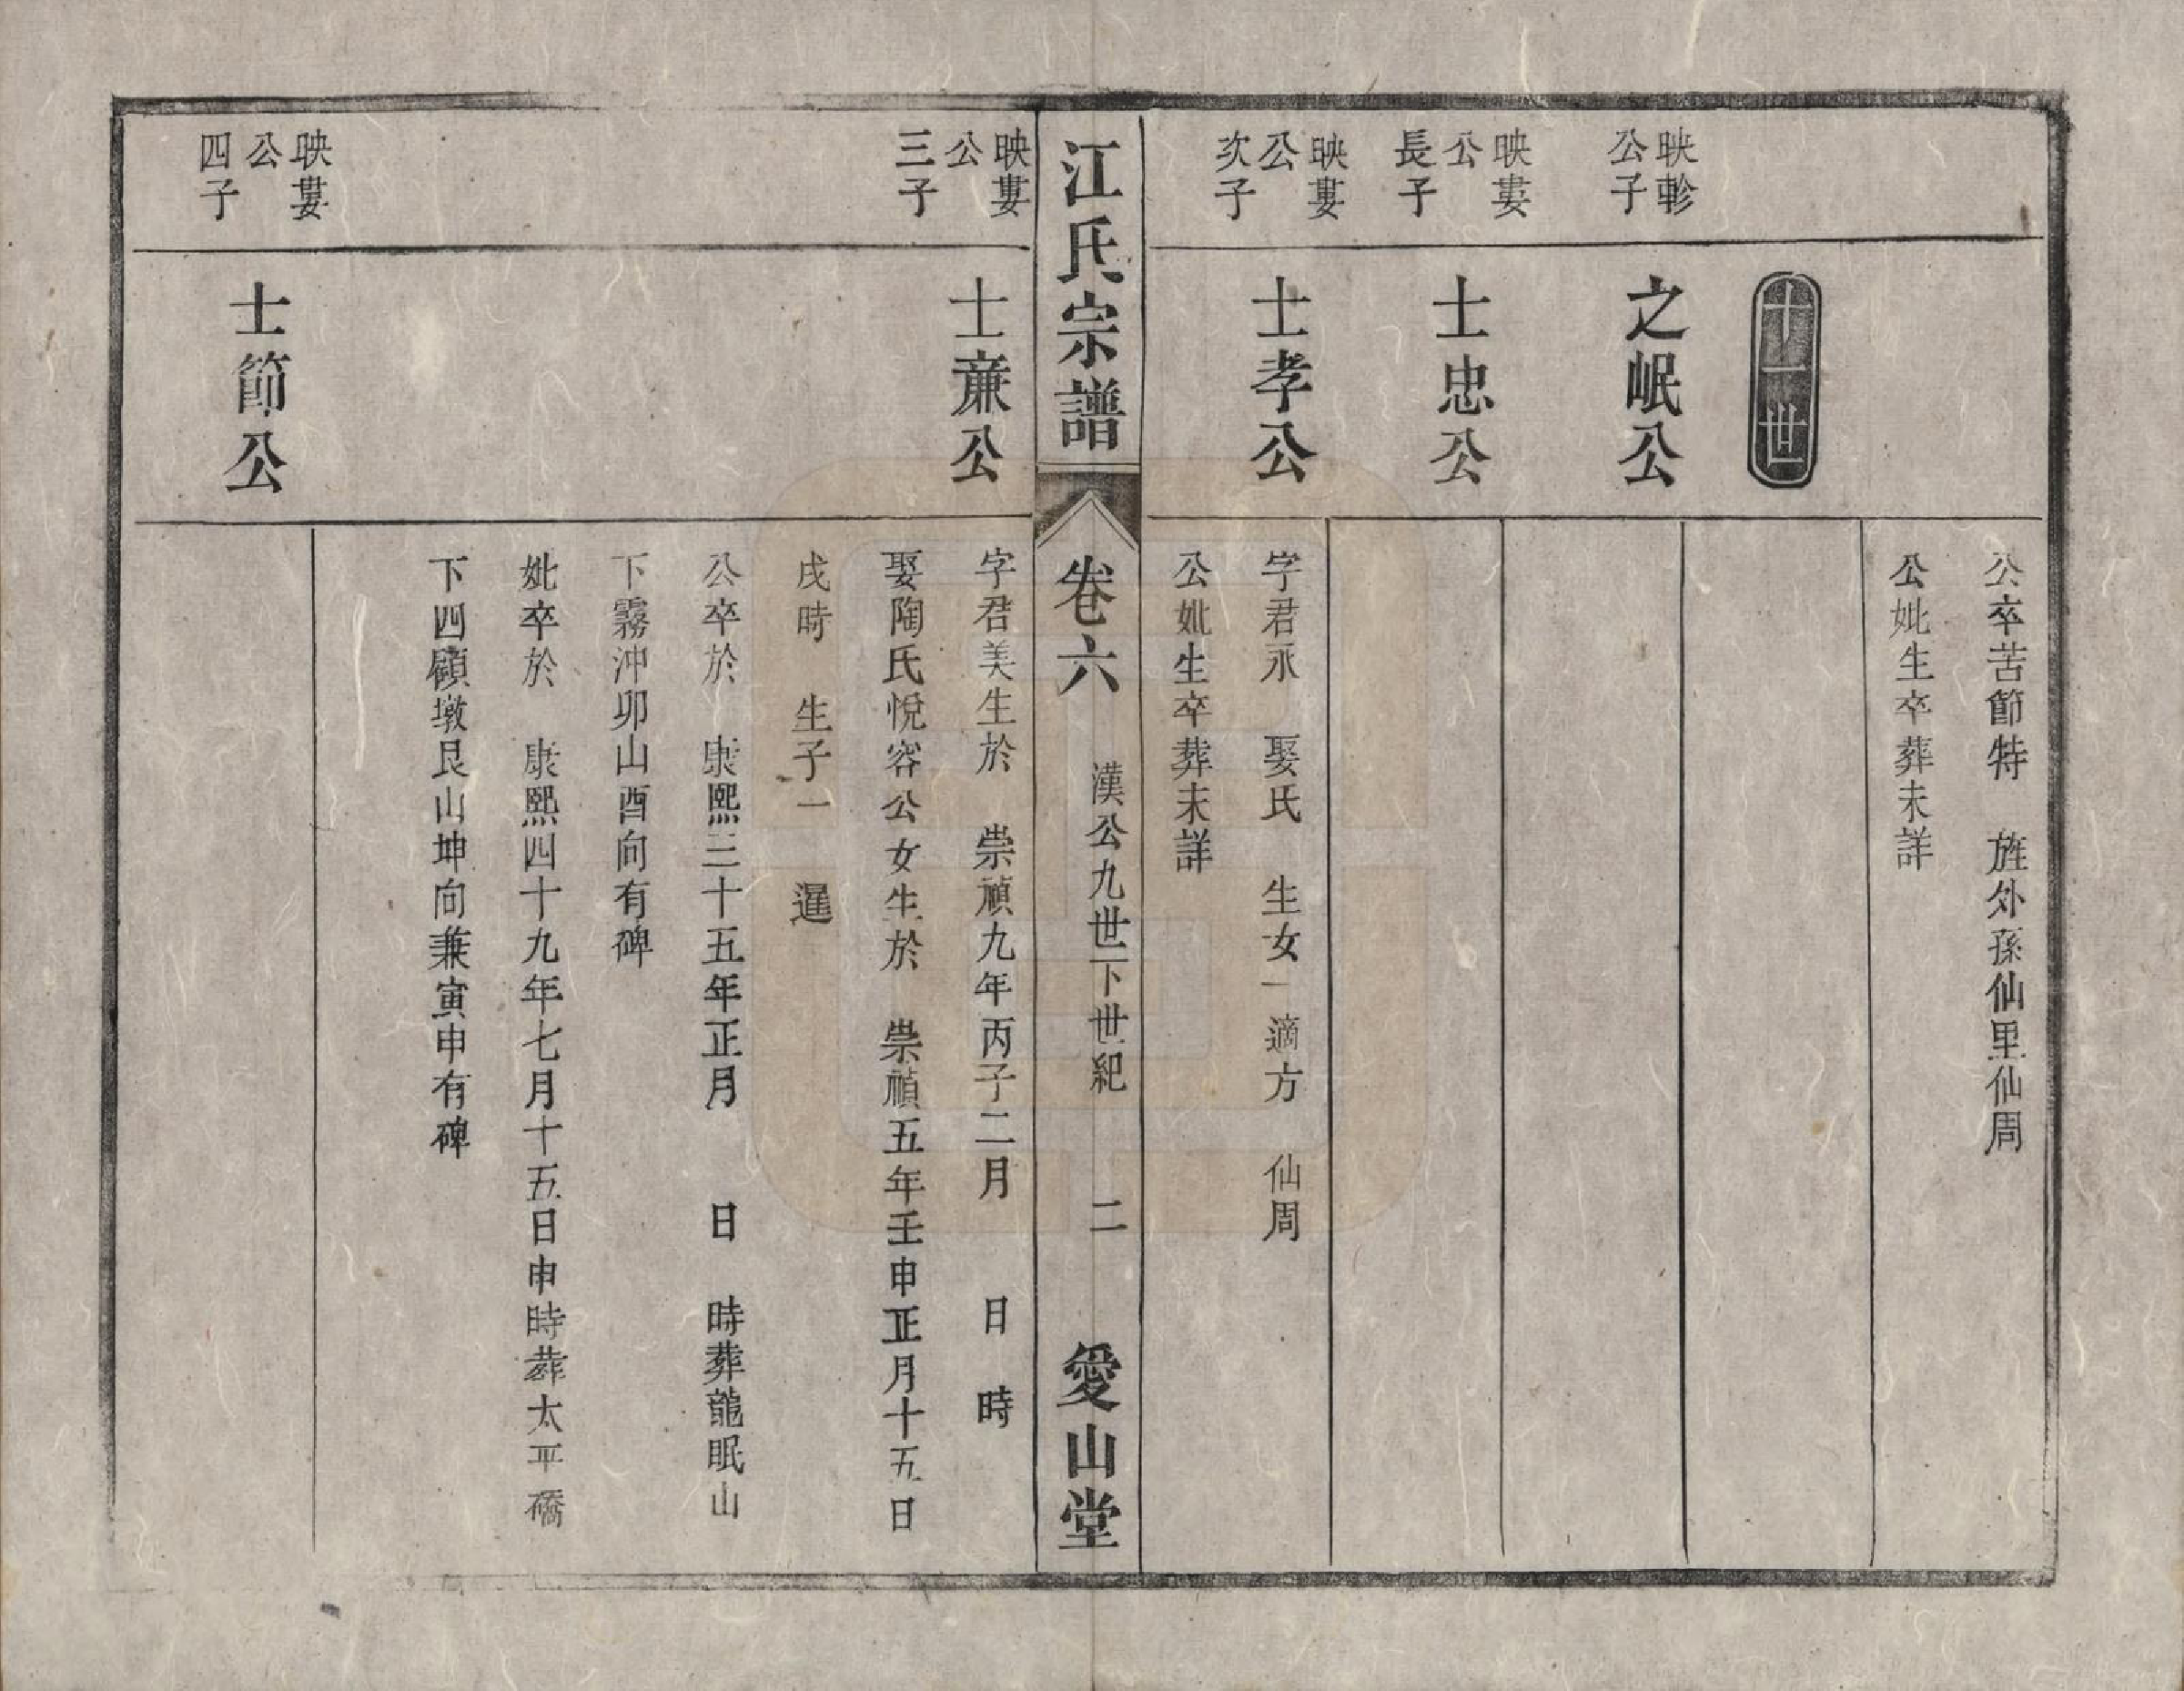 公卒苦節特　旌外孫仙里仙周
公妣生卒葬未詳
十一世
映軫
公子
之岷公
映婁
公
長子
士忠公
映婁
公
次子
士孝公
字君永　娶氏　生女一適方　仙周
公妣生卒葬未詳
江氏宗譜
卷六
漢公九世下世紀
二
愛山堂
映婁
公
三子
士廉公
字君美生於　崇禎九年丙子二月　日　時
娶陶氏悅容公女生於　崇禎五年壬申正月十五日
戌時　生子一　暹
公卒於　康熙三十五年正月　日　時葬龍眠山
下霧沖卯山酉向有碑
妣卒於　康熙四十九年七月十五日申時葬太平橋
下四顧墩艮山坤向兼寅申有碑
映婁
公
四子
士節公